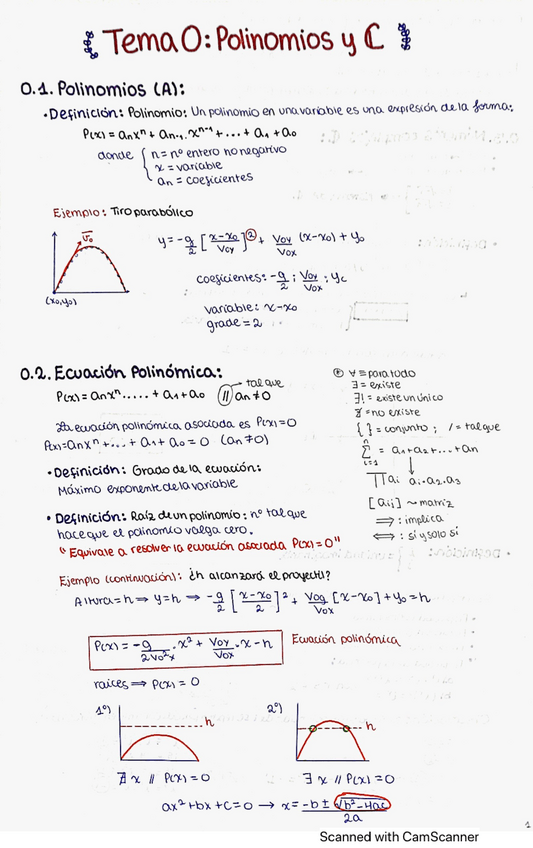 Tema 0: Polinomios y ℂ
0.1. Polinomios (A):
• Definición: Polinomio: Un polinomio en una variable es una expresión de la forma:
P(x) = aₙxⁿ + aₙ₋₁.xⁿ⁻¹ + ... + a₁ + a₀
donde { n = nº entero no negativo
x = variable
aₙ = coeficientes
Ejemplo: Tiro parabólico
v₀
(x₀,y₀)
y = -g/2 [x-x₀/V₀y]² + V₀y/V₀x (x-x₀) + y₀
coeficientes: -g/2 ; V₀y/V₀x ; yc
variable: x-x₀
grade = 2
0.2. Ecuación Polinómica:
P(x) = aₙxⁿ..... + a₁ + a₀ // aₙ ≠ 0
tal que
La ecuación polinómica asociada es P(x) = 0
P(x) = aₙxⁿ + ... + a₁ + a₀ = 0 (aₙ ≠ 0)
• Definición: Grado de la ecuación:
Máximo exponente de la variable
• Definición: Raíz de un polinomio: nº tal que
hace que el polinomio valga cero.
"Equivale a resolver la ecuación asociada P(x) = 0"
∀ = para todo
∃ = existe
∃! = existe un único
∄ = no existe
{ } = conjunto ; / = tal que
n
∑ = a₁ + a₂ + ... + aₙ
i=1
∏ ai a₁.a₂.a₃
[aij] ~ matriz
⟹ : implica
⟺ : si y solo si
Ejemplo (continuación): ¿h alcanzará el proyectil?
Altura = h ⟹ y = h ⟹ -g/2 [x-x₀/2]² + V₀y/V₀x [x-x₀] + y₀ = h
P(x) = -g/2V₀²x . x² + V₀y/V₀x . x - h
Ecuación polinómica
raíces ⟹ P(x) = 0
1º)
h
∄ x // P(x) = 0
2º)
h
∃ x // P(x) = 0
ax² + bx + c = 0 → x = -b ± √b² - 4ac / 2a
1
Scanned with CamScanner